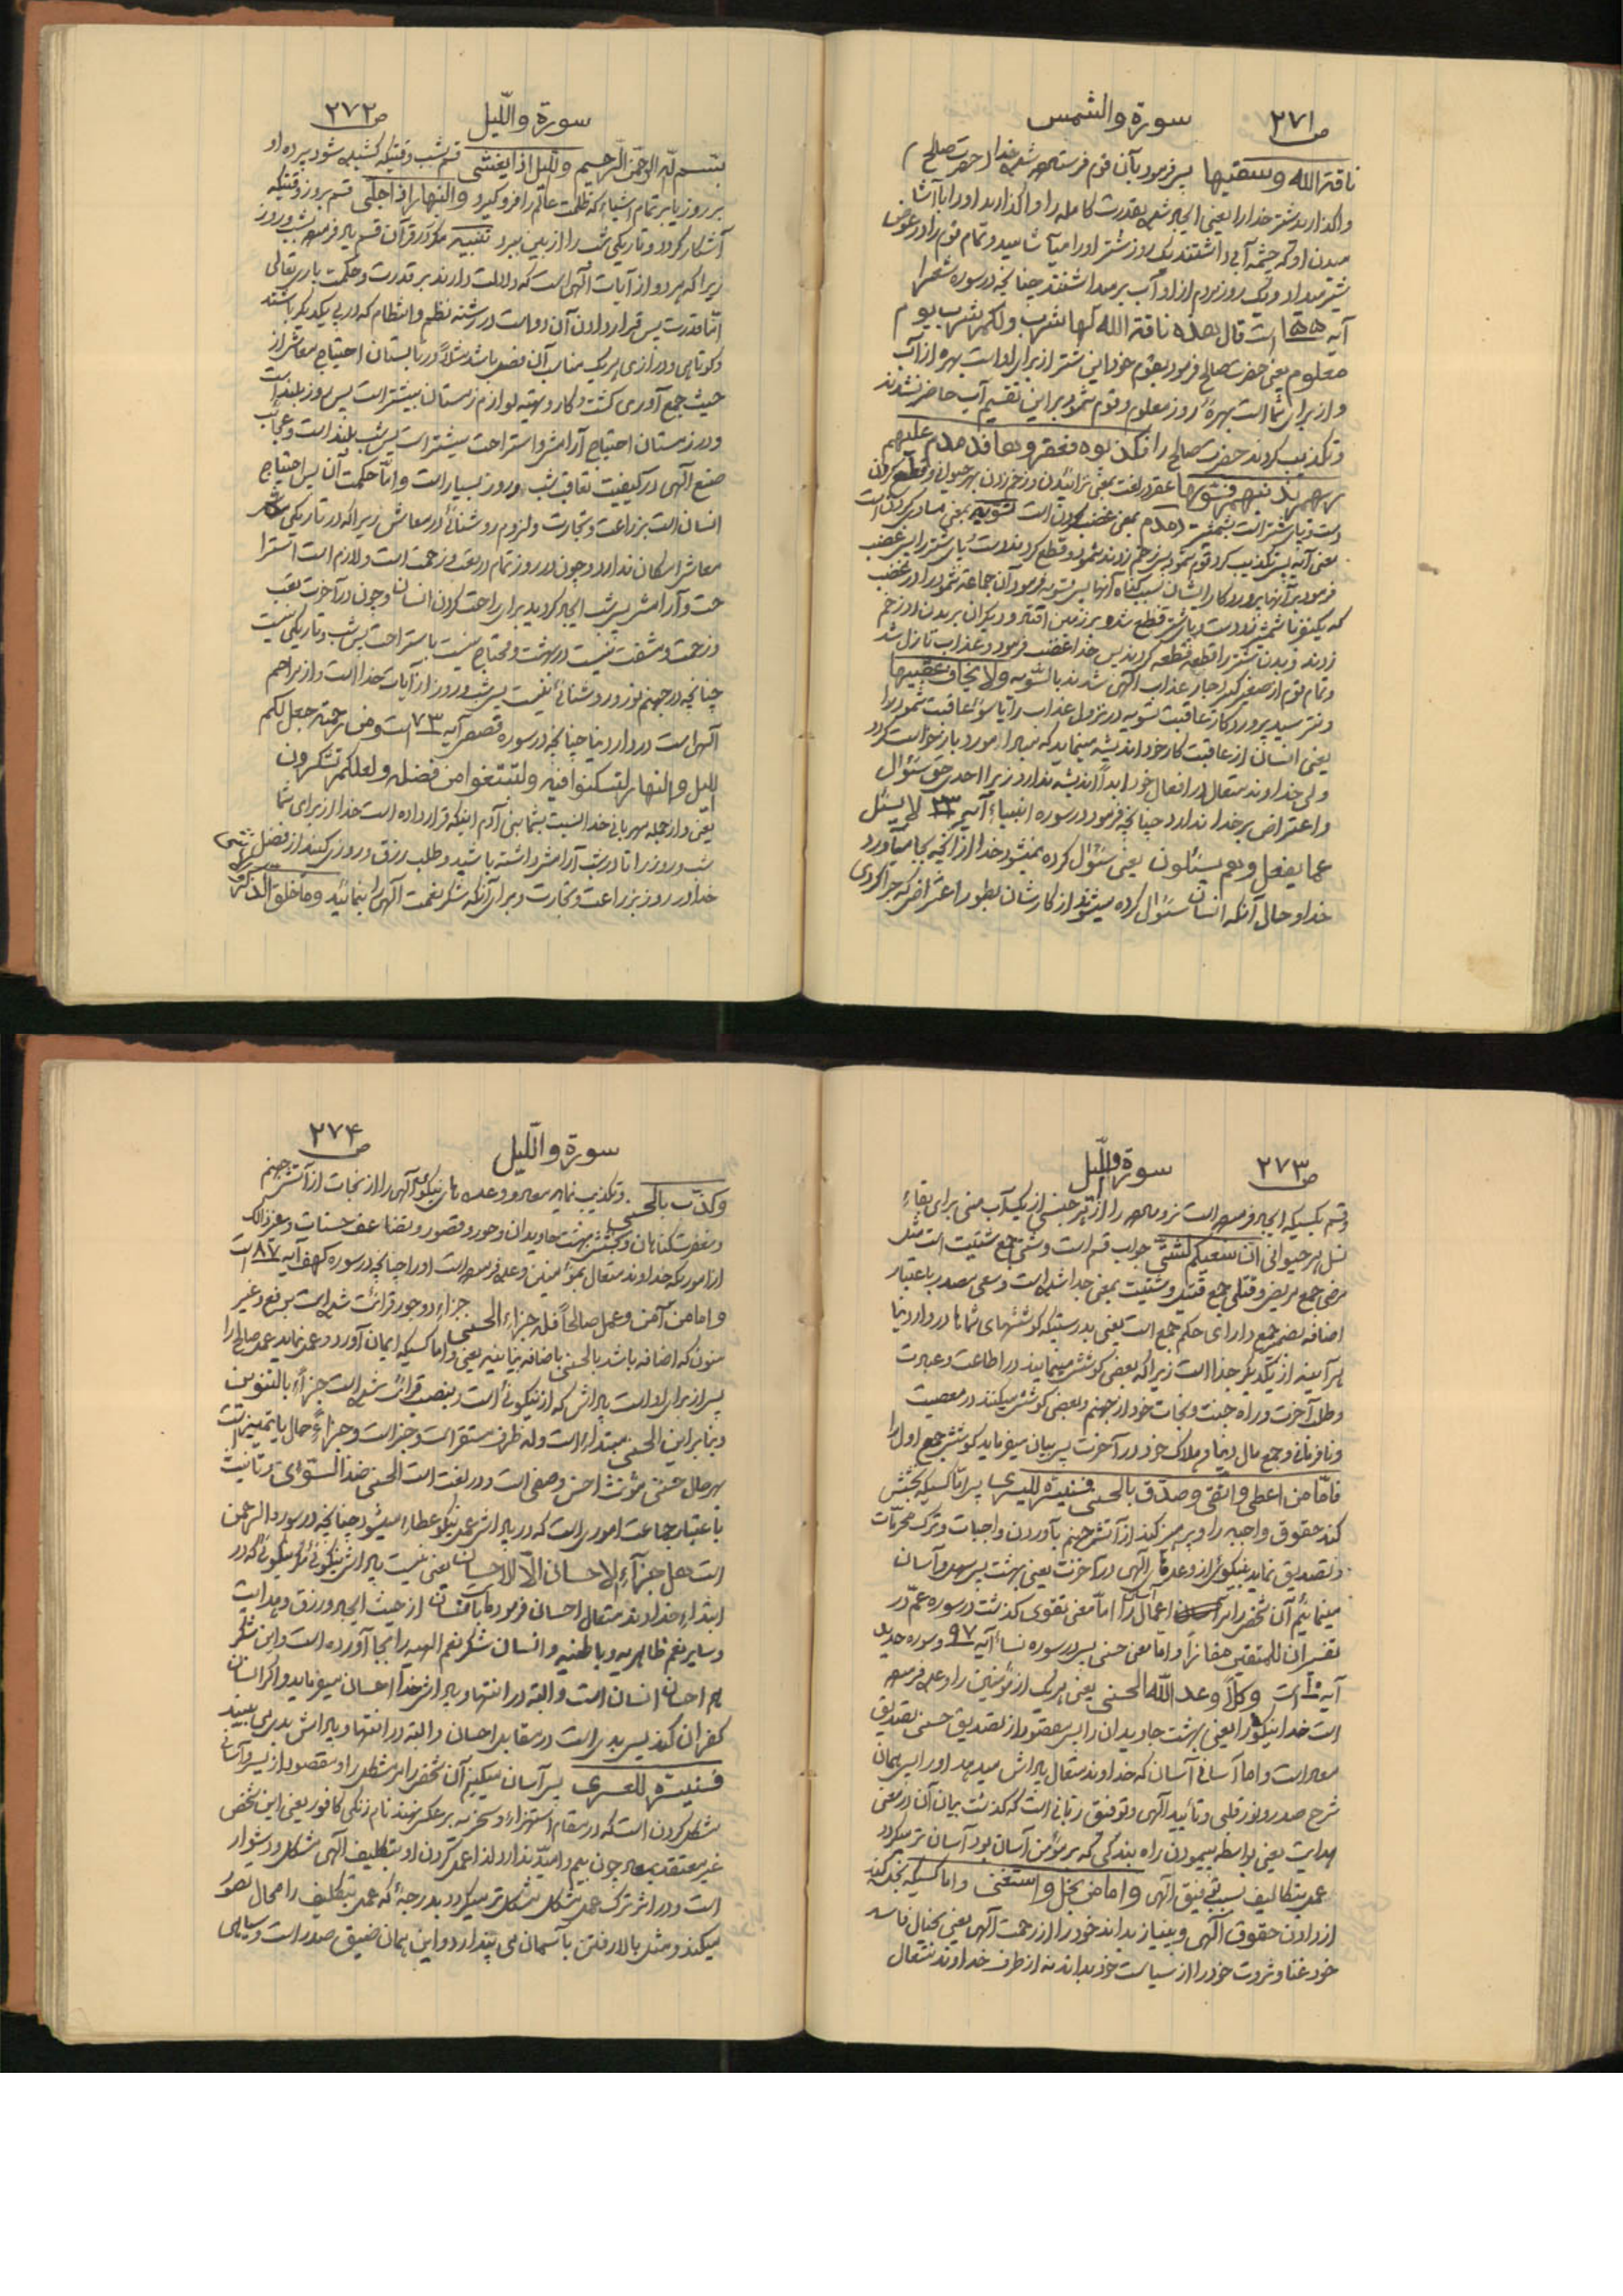 ص ۲۷۱
سورة والشمس
ناقة الله وسقیها پس فرمود بآن قوم فرستاده شده خدا حضرت صالح
واگذارید شتر خدا را یعنی ایجاد شده بقدرت کامله را واگذارید او را با آشا
میدن او که چشمه آبی داشتند یک روز شتر او را میآشامید و تمام قوم را در عوض
شیر میداد و یک روز مردم از او آب برمیداشتند چنانچه در سوره شعرا
آیه ۱۵۵ است قال هذه ناقة الله لها شرب ولکم شرب یوم
معلوم یعنی حضرت صالح فرمود بقوم خود این شتر از برای او است بهره از آب
و از برای شما است بهره روز معلوم و قوم ثمود بر این تقسیم آب حاضر نشدند
و تکذیب کردند حضرت صالح را فکذبوه فعقروها فدمدم علیهم
ربهم بذنبهم فسویها عقر در لغت بمعنی زخم زدن بهر حیوان و قطع کردن
دست و پای شتر است بشمشیر دمدم بمعنی غضب کردن است تسویه بمعنی مساوی کردن است
معنی آنه پس تکذیب کرد قوم ثمود پس زخم زدند و قطع کردند دست و پای شتر را پس غضب
فرمود بر آنها پروردگار ایشان بسبب گناه آنها پس تسویه فرمود آن جماعة ثمود را در غضب
که یکنفر با شمشیر زد و دست و پای شتر قطع شد و بر زمین افتاد و دیگران بر بدن او زخم
زدند و بدن شتر را قطعه قطعه کردند پس خدا غضب فرمود و عذاب نازل شد
و تمام قوم از صغیر و کبیر دچار عذاب الهی شدند بالسویه ولا یخاف عقبیها
و نترسید پروردگار عاقبت تسویه در نزول عذاب را یا سوء عاقبت ثمود را
یعنی انسان از عاقبت کار خود اندیشه مینماید که مبادا مورد بازخواست گردد
ولی خداوند متعال در افعال خود ابداً اندیشه ندارد زیرا احدی حق سئوال
و اعتراض بر خدا ندارد چنانچه فرمود در سوره انبیاء آیه ۲۳ لا یسئل
عما یفعل وهم یسئلون یعنی سئوال کرده نمیشود خدا از آنچه بجا میآورد
خدا و حال آنکه انسان سئوال کرده میشود از کارشان بطور اعتراض که چرا کردی
ص ۲۷۲
سورة واللیل
بسم الله الرحمن الرحیم واللیل اذا یغشی قسم بشب وقتیکه کشیده شود پرده او
بر روز یا بر تمام اشیاء که ظلمت عالم را فرو گیرد والنهار اذا تجلی قسم بروز وقتیکه
آشکار گردد و تاریکی شب را از بین ببرد تنبیه مکرر در قرآن قسم یاد فرموده بشب و روز
زیرا که هر دو از آیات الهی است که دلالت دارند بر قدرت و حکمت باریتعالی
اما قدرت پس قرار دادن آن دو است در رشته نظم و انتظام که در پی یکدیگر باشند
و کوتاهی و درازی هر یک مناسب آن فصل باشد مثلاً در تابستان احتیاج بمعاش از
حیث جمع آوری کشت و کار و تهیه لوازم زمستان بیشتر است پس روز بلند است
و در زمستان احتیاج آرامش و استراحت بیشتر است پس شب بلند است و عجایب
صنع الهی در کیفیت تعاقب شب و روز بسیار است و اما حکمت آن پس احتیاج
انسان است بزراعت و تجارت و لزوم روشنائی در معاش زیرا که در تاریکی شب
معاش امکان ندارد و چون در روز تمام در تعب و زحمت است و لازم است استرا
حت و آرامش پس شب ایجاد گردید برای راحت کردن انسان و چون در آخرت تعب
و زحمت و مشقت نیست در بهشت و محتاج نیست باستراحت پس شب و تاریکی نیست
چنانچه در جهنم نور و روشنائی نیست پس شب و روز از آیات خدا است و از مراحم
الهی است در دار دنیا چنانچه در سوره قصص آیه ۷۳ است ومن رحمته جعل لکم
اللیل والنهار لتسکنوا فیه ولتبتغوا من فضله ولعلکم تشکرون
یعنی و از جمله مهربانی خدا نسبت بشما بنی آدم اینکه قرار داده است خدا از برای شما
شب و روز را تا در شب آرامش داشته باشید و طلب رزق و روزی کنید از فضل
خدا در روز بزراعت و تجارت و برای آنکه شکر نعمت الهی را بنمائید وما خلق الذکر والانثی
ص ۲۷۳
سورة واللیل
و قسم بکسیکه ایجاد فرموده است نر و ماده را از هر جنسی از یک آب منی برای بقاء
نسل هر حیوانی ان سعیکم لشتی جواب قسم است و شتی جمع شتیت است مثل
مرضی جمع مریض و قتلی جمع قتیل و شتیت بمعنی جدا شده است و سعی مصدر باعتبار
اضافه بضمیر جمع دارای حکم جمع است یعنی بدرستیکه کوششهای شماها در دار دنیا
هر آینه از یکدیگر جدا است زیرا که بعضی کوشش مینمایند در اطاعت و عبادت
و طلب آخرت و راه جنت و نجات خود از جهنم و بعضی کوشش میکنند در معصیت
و نافرمانی و جمع مال دنیا و هلاک خود در آخرت پس بیان میفرماید کوشش جمع اول را
فاما من اعطی واتقی وصدق بالحسنی فسنیسره للیسری پس اما کسیکه بخشش
کند حقوق واجبه را و پرهیز کند از آتش جهنم بآوردن واجبات و ترک محرمات
و تصدیق نماید به نیکوئی از وعدهای الهی در آخرت یعنی بهشت پس سهل و آسان
مینمائیم آن شخص را برای آسان اعمال را اما معنی تقوی گذشت در سوره عم در
تفسیر ان للمتقین مفازاً و اما معنی حسنی پس در سوره نساء آیه ۹۷ و سوره حدید
آیه ۱۰ است وکلا وعد الله الحسنی یعنی هر یک از مؤمنین را وعده فرموده
است خدا نیکو را یعنی بهشت جاویدان را پس مقصود از تصدیق حسنی تصدیق
معاد است و اما آسانی آسان که خداوند متعال پاداش میدهد او را پس همان
شرح صدر و نور قلبی و تأیید الهی و توفیق ربانی است که گذشت بیان آن در معنی
هدایت یعنی بواسطه پیمودن راه بندگی که بر مؤمن آسان بود آسان تر میگردد
عمل بتکالیف بسبب توفیق الهی واما من بخل واستغنی و اما کسیکه بخل کند
از دادن حقوق الهی و بی نیاز بداند خود را از رحمت الهی یعنی بخیال فاسد
خود غنا و ثروت خود را از سیاست خود بداند نه از طرف خداوند متعال
ص ۲۷۴
سورة واللیل
وکذب بالحسنی و تکذیب نماید معاد و وعده های نیکوی الهی را از نجات از آتش جهنم
و مغفرت گناهان و بخشش بهشت جاویدان و حور و قصور و تضاعف حسنات و غیر ذالک
از اموریکه خداوند متعال بمؤمنین وعده فرموده است او را چنانچه در سوره کهف آیه ۸۷ است
واما من آمن وعمل صالحاً فله جزاء الحسنی جزاء دو جور قرائت شده است برفع و غیر
منون که اضافه باشد بالحسنی باضافه بیانیه یعنی و اما کسیکه ایمان آورد و عمل نماید عمل صالح را
پس از برای او است پاداش که از نیکوئی است و بنصب قرائت شده است جزاءً بالتنوین
و بنا بر این الحسنی مبتداء است و له ظرف مستقر است و خبر است و جزاءً حال یا تمییز است
بهر حال حسنی مؤنث احسن وصفی است و در لغت است الحسنی ضد السوءی و تانیث
باعتبار جماعت اموری است که در پاداش عمل نیکو عطاء میشود چنانچه در سوره الرحمن
است هل جزاء الاحسان الا الاحسان یعنی نیست پاداش نیکوئی مگر نیکوئی که در
ابتداء خداوند متعال احسان فرموده بانسان از حیث ایجاد و رزق و هدایت
و سایر نعم ظاهریه و باطنیه و انسان شکر نعم الهیه را بجا آورده است و این شکر
هم احسان انسان است و البته در انتها و پاداش خدا احسان میفرماید و اگر انسان
کفران کند پس بدی است در مقابل احسان و البته در انتها و پاداش بدی می بیند
فسنیسره للعسری پس آسان میکنیم آن شخص را بر مشکل و مقصود از یسر و آسان
مشکل کردن است که در مقام استهزاء و سخریه برعکس نهند نام زنگی کافور یعنی این شخص
غیر معتقد بمعاد چون بیم و امید ندارد لذا عمل کردن او بتکلیف الهی مشکل و دشوار
است و در اثر ترک عمل مشکل مشکل تر میگردد بدرجهٔ که عمل بتکلیف را محال تصور
میکند و مثل بالا رفتن بآسمان می پندارد و این همان ضیق صدر است و سیاهی